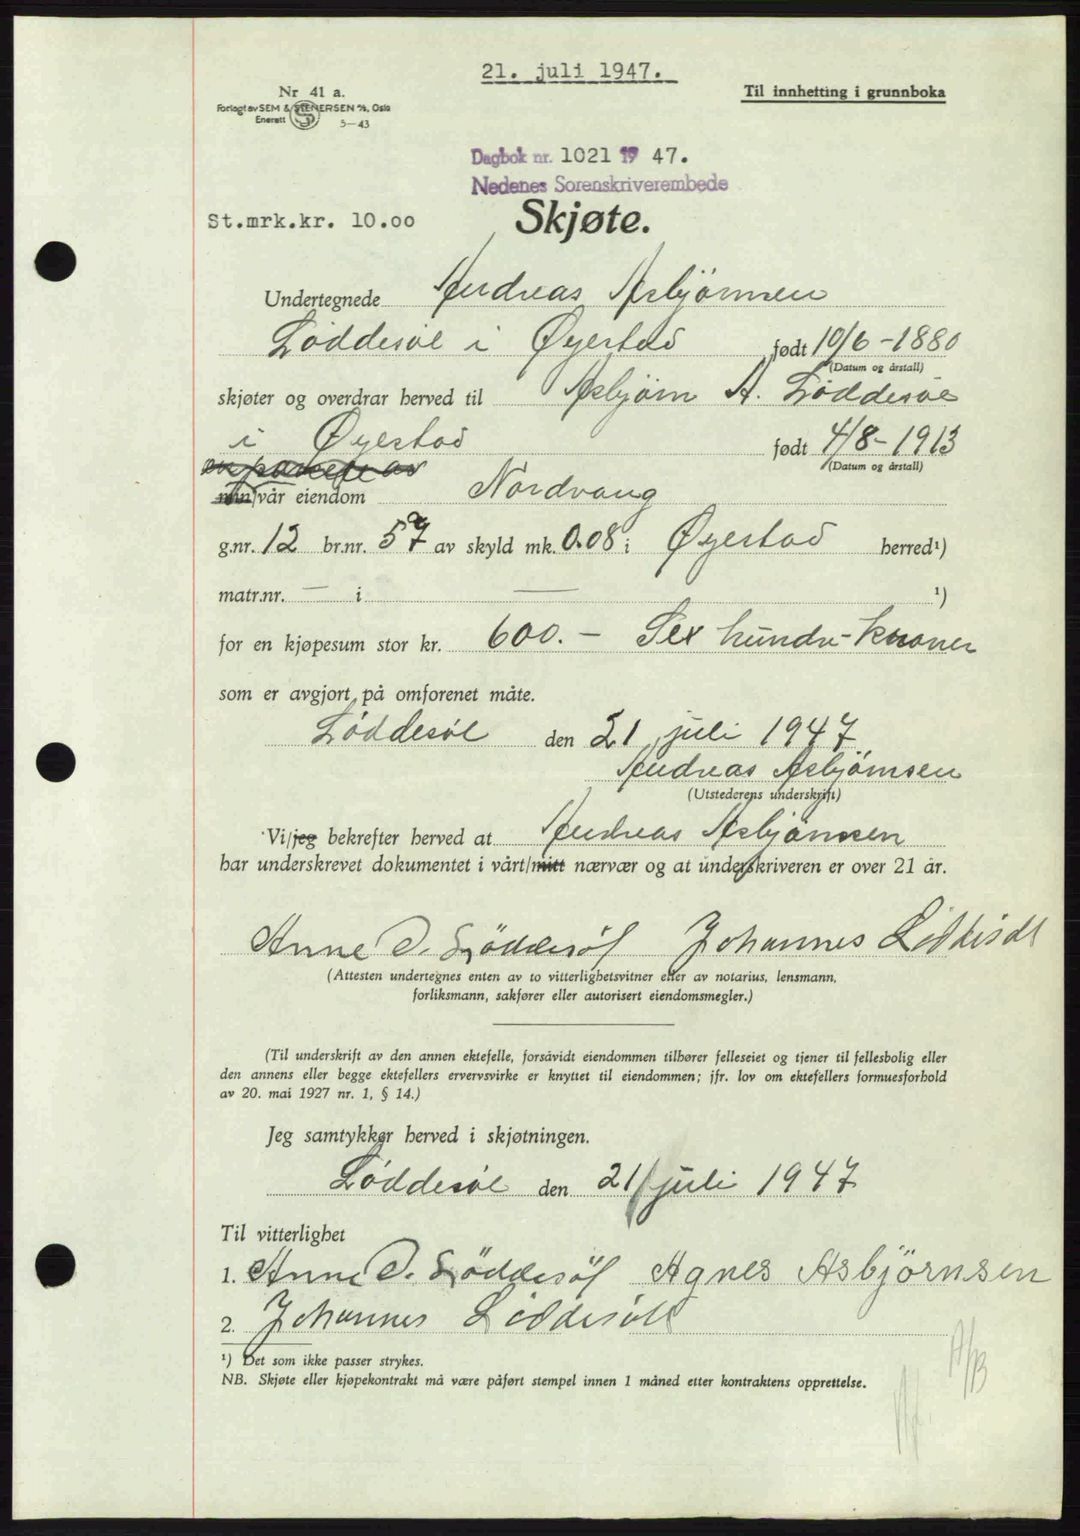 21. juli 1947.
Nr 41 a.
Forlagt av SEM & STENERSEN A/S, Oslo
Enerett 5-43
Til innhefting i grunnboka
Dagbok nr. 1021 19 47.
Nedenes Sorenskriverembede
St.mrk.kr. 10.00
Skjøte.
Undertegnede Andreas Asbjørnsen
Løddesøl i Øyestad født 10/6-1880
(Datum og årstall)
skjøter og overdrar herved til Asbjørn A. Løddesøl
i Øyestad født 4/8-1913
(Datum og årstall)
min/vår eiendom Nordvang
g.nr. 12 br.nr. 57 av skyld mk. 0.08 i Øyestad herred¹)
matr.nr. — i — ¹)
for en kjøpesum stor kr. 600.- Sex hundre-kroner
som er avgjort på omforenet måte.
Løddesøl den 21 juli 1947
Andreas Asbjørnsen
(Utstederens underskrift)
Vi/jeg bekrefter herved at Andreas Asbjørnsen
har underskrevet dokumentet i vårt/mitt nærvær og at underskriveren er over 21 år.
Anne D. Løddesøl Johannes Løddesøl
(Attesten undertegnes enten av to vitterlighetsvitner eller av notarius, lensmann,
forliksmann, sakfører eller autorisert eiendomsmegler.)
(Til underskrift av den annen ektefelle, forsåvidt eiendommen tilhører felleseiet og tjener til fellesbolig eller
den annens eller begge ektefellers ervervsvirke er knyttet til eiendommen; jfr. lov om ektefellers formuesforhold
av 20. mai 1927 nr. 1, § 14.)
Jeg samtykker herved i skjøtningen.
Løddesøl den 21/juli 1947
Til vitterlighet
1. Anne D. Løddesøl Agnes Asbjörnsen
2. Johannes Løddesøl
¹) Det som ikke passer strykes.
NB. Skjøte eller kjøpekontrakt må være påført stempel innen 1 måned etter kontraktens opprettelse.
A/B